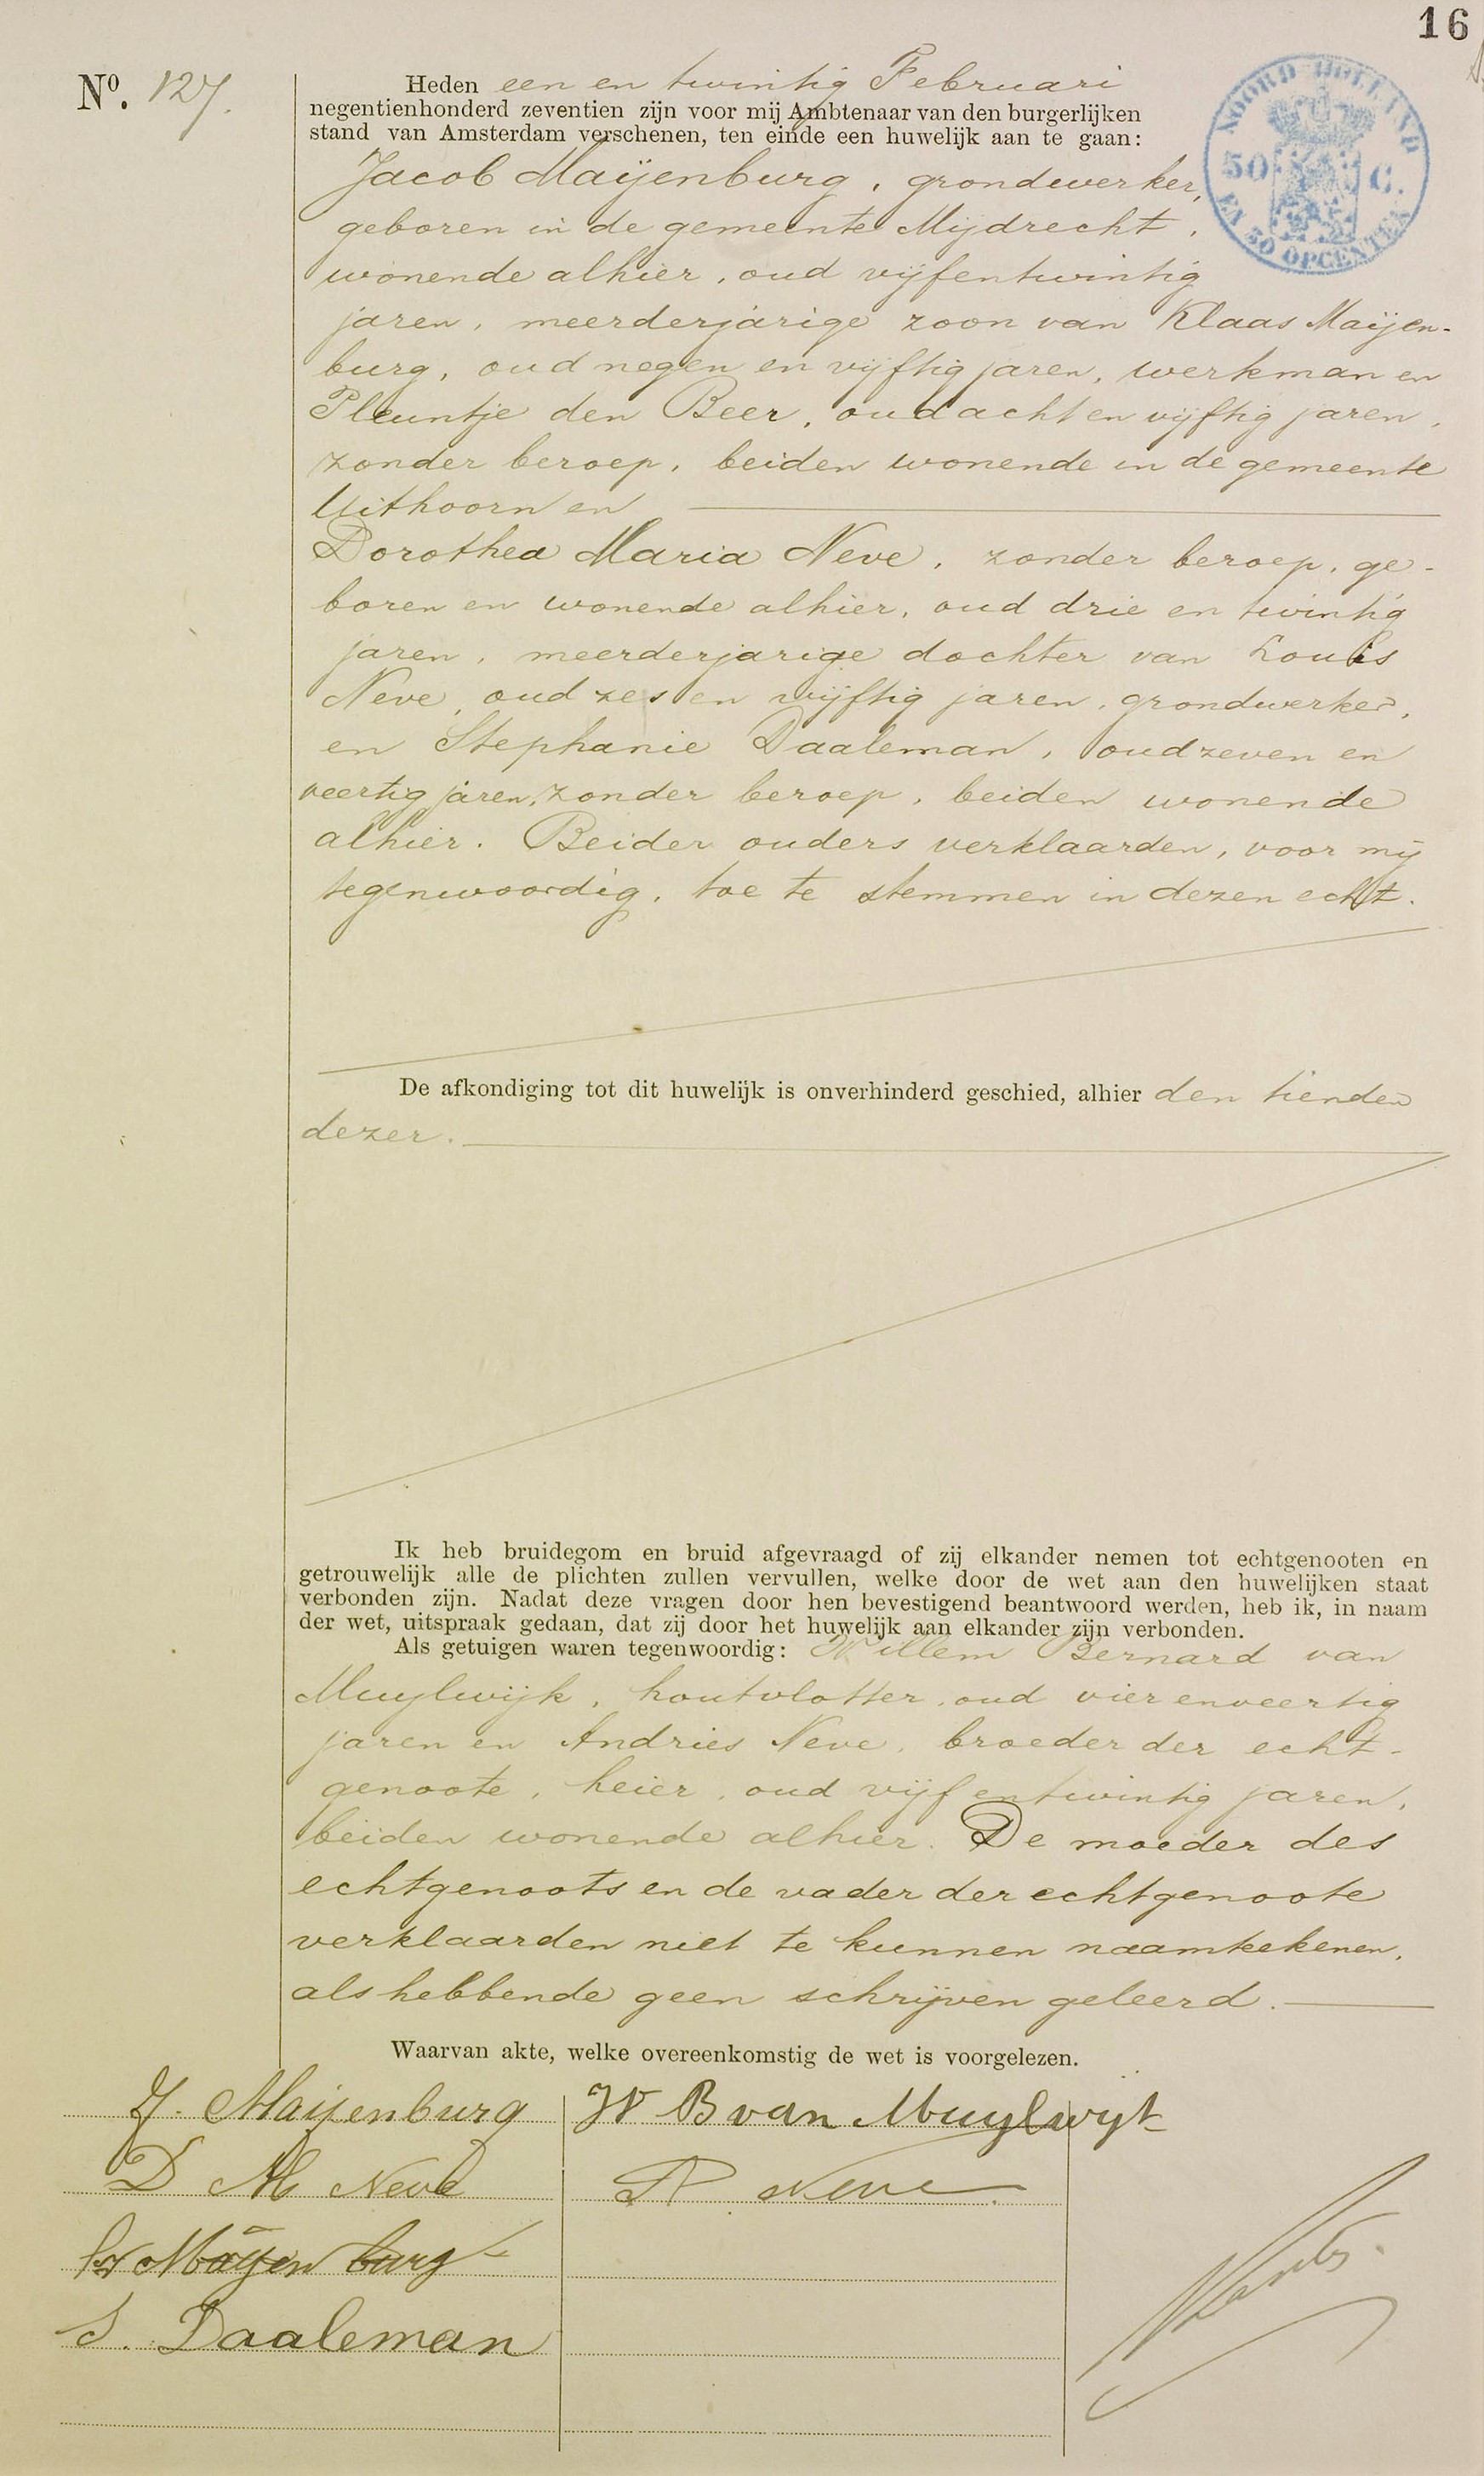 16
Nº. 127.
Heden een en twintig Februari
negentienhonderd zeventien zijn voor mij Ambtenaar van den burgerlijken
stand van Amsterdam verschenen, ten einde een huwelijk aan te gaan:
NOORD HOLLAND
50 C.
EN 50 OPCENTEN
Jacob Maijenburg, grondwerker,
geboren in de gemeente Mijdrecht,
wonende alhier, oud vijfentwintig
jaren, meerderjarige zoon van Klaas Maijen-
burg, oud negen en vijftig jaren, werkman en
Pleuntje den Beer, oud acht en vijftig jaren,
zonder beroep, beiden wonende in de gemeente
Uithoorn en
Dorothea Maria Neve, zonder beroep, ge-
boren en wonende alhier, oud drie en twintig
jaren, meerderjarige dochter van Louis
Neve, oud zes en vijftig jaren, grondwerker,
en Stephanie Daaleman, oud zeven en
veertig jaren, zonder beroep, beiden wonende
alhier. Beider ouders verklaarden, voor mij
tegenwoordig, toe te stemmen in dezen echt.
De afkondiging tot dit huwelijk is onverhinderd geschied, alhier den tienden
dezer.
Ik heb bruidegom en bruid afgevraagd of zij elkander nemen tot echtgenooten en
getrouwelijk alle de plichten zullen vervullen, welke door de wet aan den huwelijken staat
verbonden zijn. Nadat deze vragen door hen bevestigend beantwoord werden, heb ik, in naam
der wet, uitspraak gedaan, dat zij door het huwelijk aan elkander zijn verbonden.
Als getuigen waren tegenwoordig: Willem Bernard van
Muylwijk, houtvlotter, oud vier en veertig
jaren en Andries Neve, broeder der echt-
genoote, heier, oud vijf en twintig jaren,
beiden wonende alhier. De moeder des
echtgenoots en de vader der echtgenoote
verklaarden niet te kunnen naamteekenen,
als hebbende geen schrijven geleerd.
Waarvan akte, welke overeenkomstig de wet is voorgelezen.
J. Maijenburg
W B van Muylwyk
D M Neve
A Neve
K Maijenburg
S. Daaleman